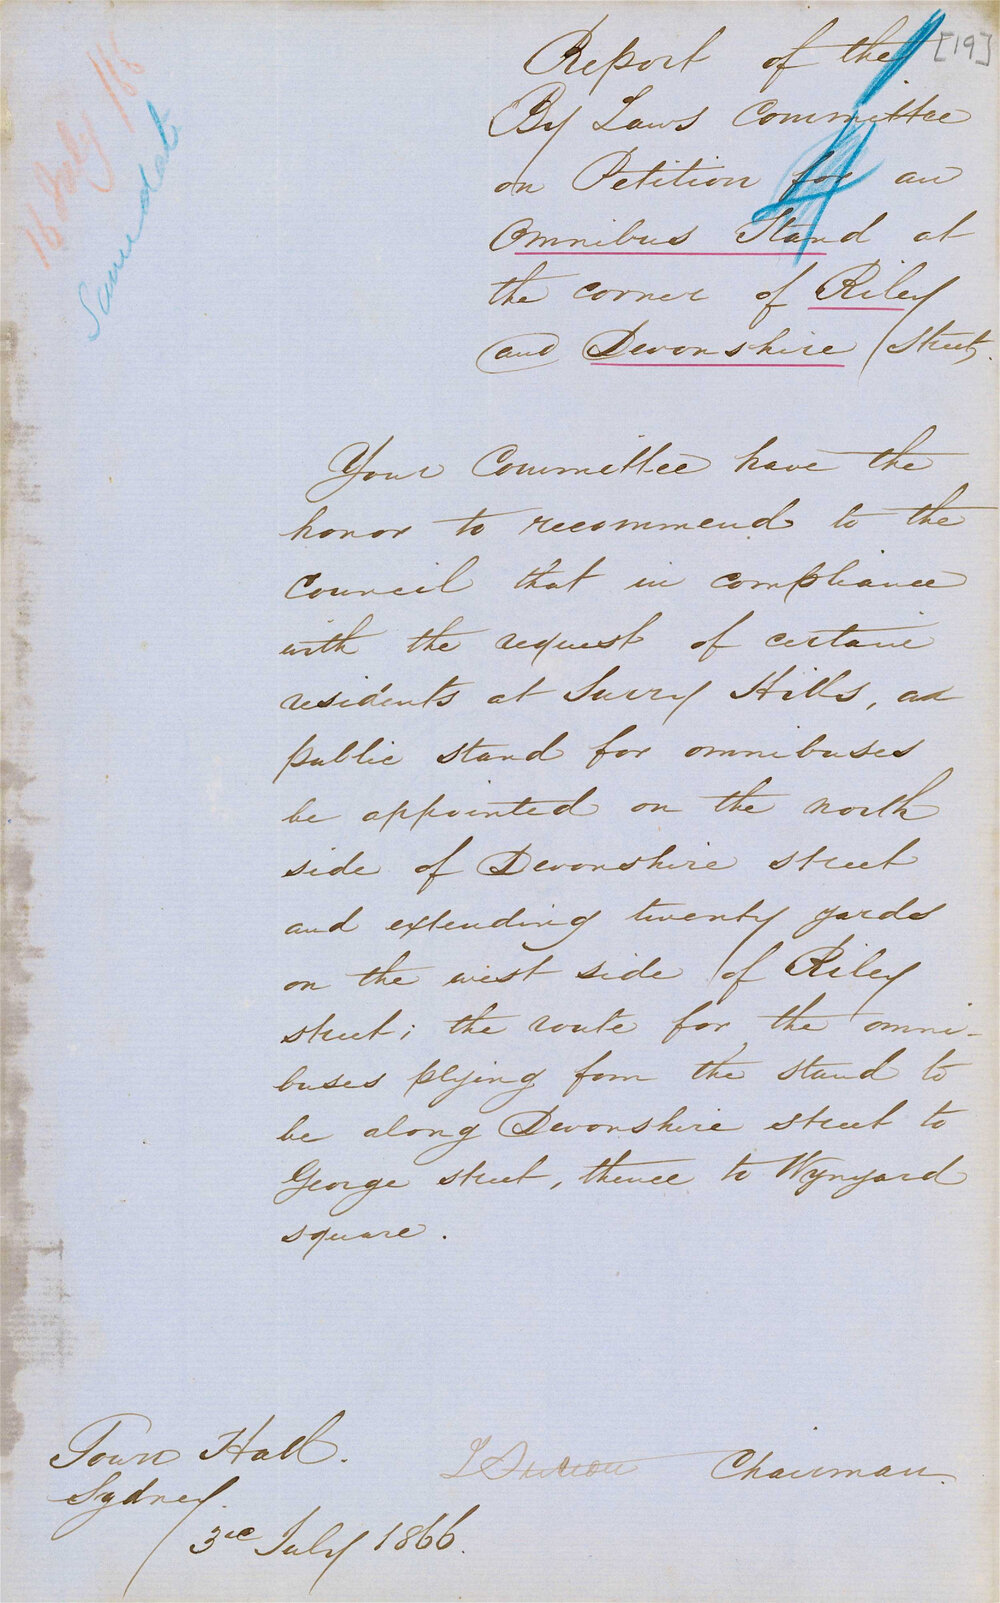 [19]
Report of the
By Laws Committee
on Petition for an
Omnibus Stand at
the corner of Riley
and Devonshire Street.
16 July
Same date
Your Committee have the
honor to recommend to the
Council that in compliance
with the request of certain
residents at Surry Hills, a
public stand for omnibuses
be appointed on the north
side of Devonshire street
and extending twenty yards
on the west side of Riley
street; the route for the omni-
buses plying from the stand to
be along Devonshire street to
George street, thence to Wynyard
square.
Town Hall.
Sydney.
3rd July 1866.
Chairman.